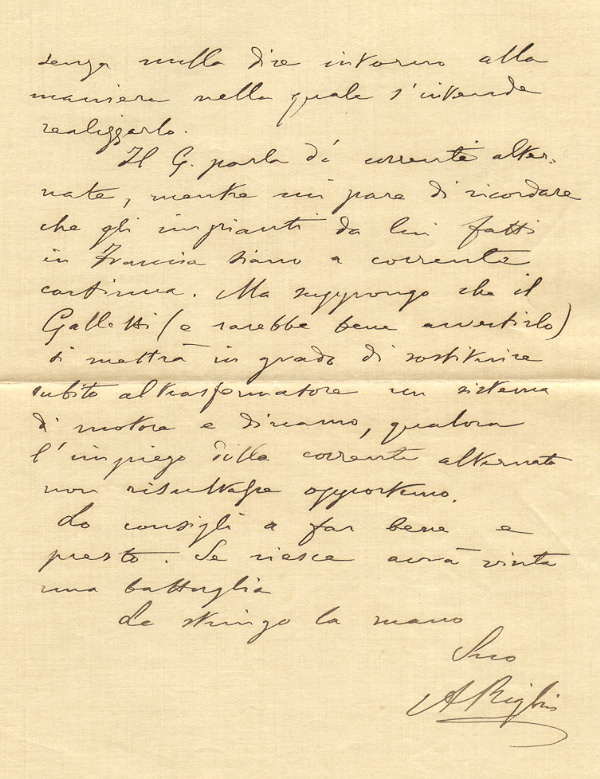 senza nulla dire intorno alla
maniera nella quale s'intende
realizzarlo.
Il G. parla di correnti alter-
nate, mentre mi pare di ricordare
che gli impianti da lui fatti
in Francia siano a corrente
continua. Ma suppongo che il
Galletti (e sarebbe bene avvertirlo)
si metterà in grado di sostituire
subito al trasformatore un sistema
di motore e dinamo, qualora
l'impiego della corrente alternata
non risultasse opportuno.
Lo consigli a far bene e
presto. Se riesce avrà vinta
una battaglia
Le stringo la mano
Suo
A Righi